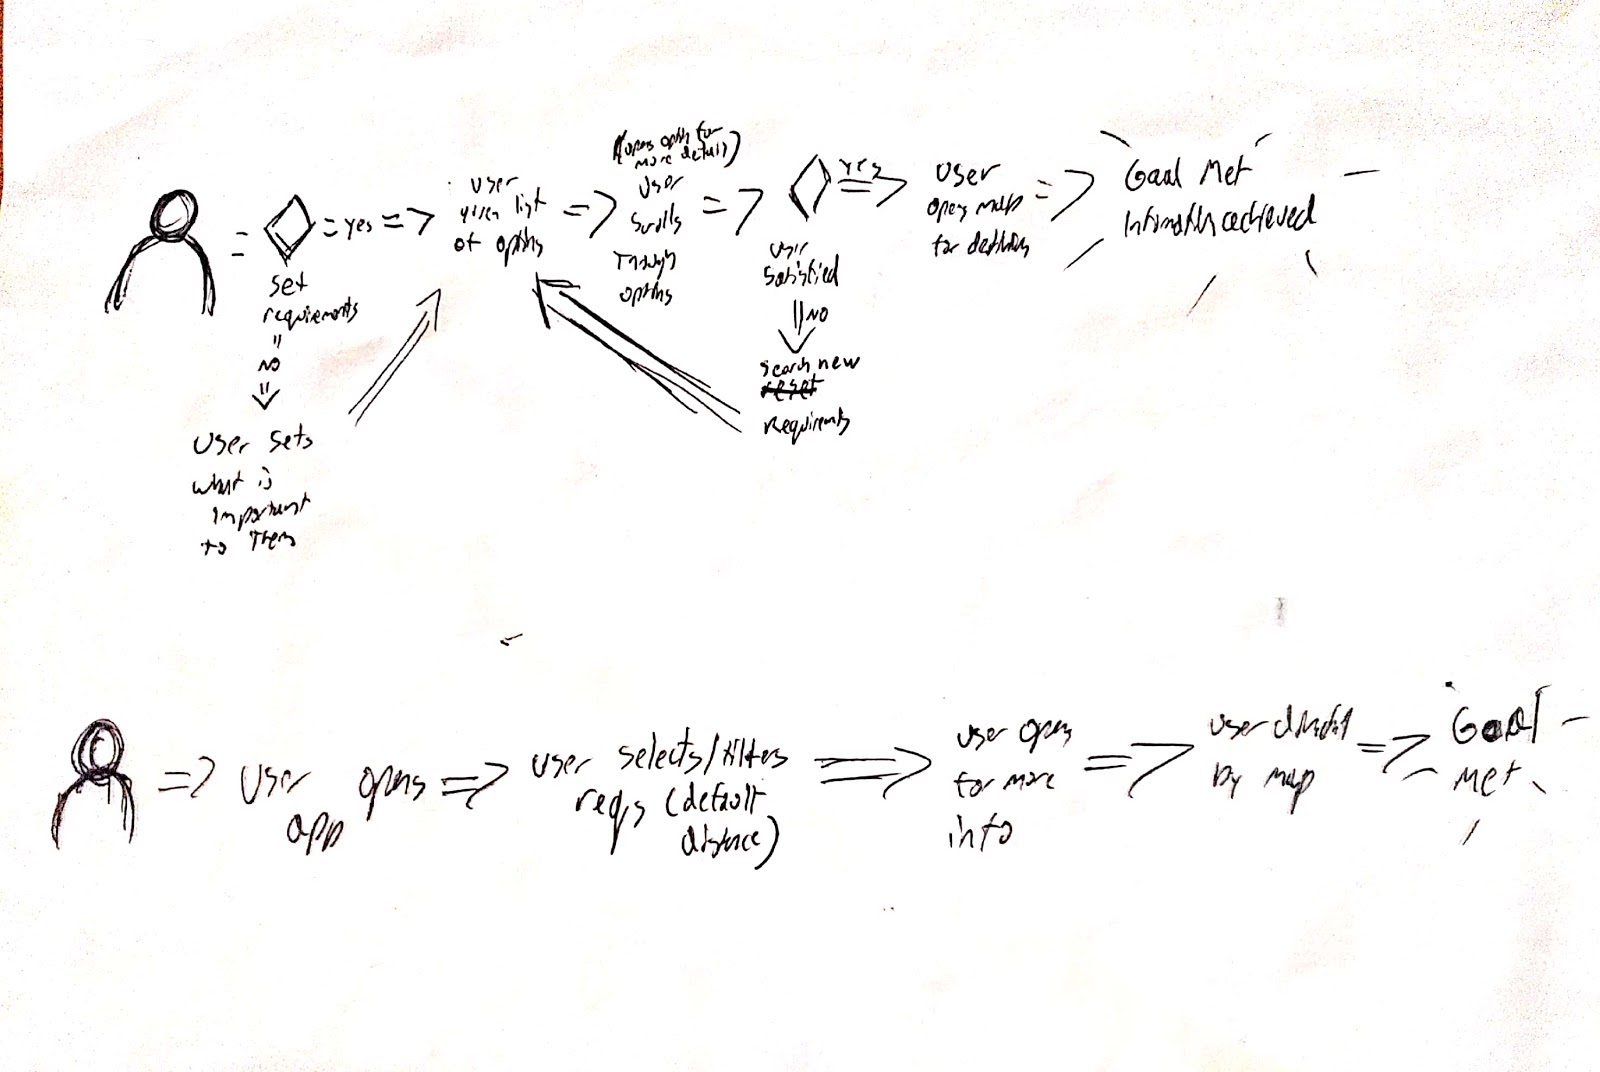 (opens optn for
more detail)
User
Scrolls
Through
options
user
given list
of options
yes
set
requirements
NO
User sets
what is
important
to them
yes
user
satisfied
NO
search new
reset
Requirements
user
opens map
for
Goal Met
achieved
User opens
app
user selects/filters
reqs (default
distance)
user opens
for more
info
user
by map
Goal
Met